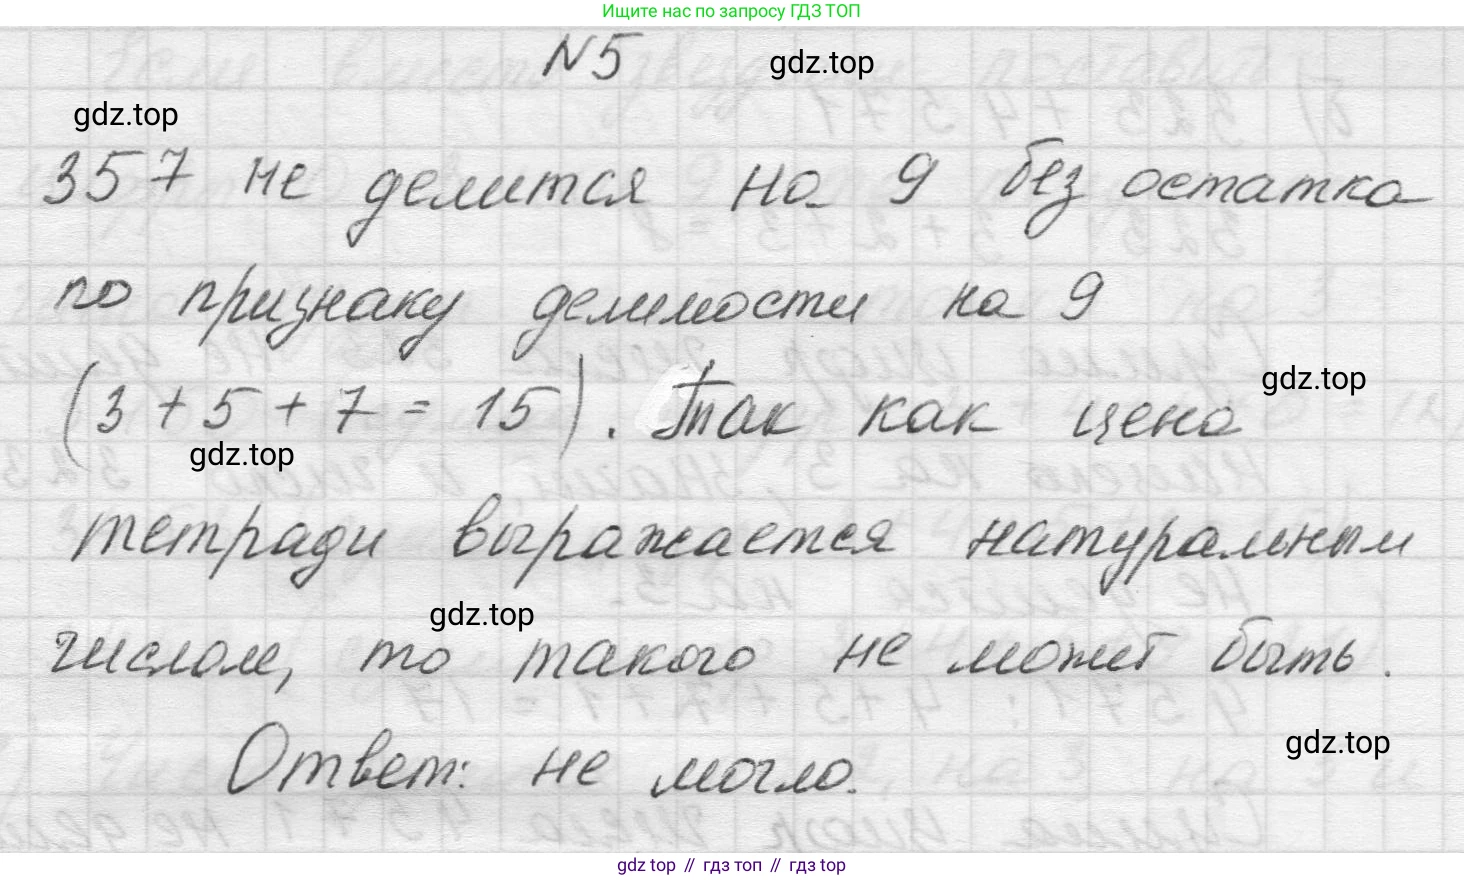 Ищите нас по запросу ГДЗ ТОП
N5
gdz.top
gdz.top
357 не делится на 9 без остатка
по признаку делимости на 9
(3 + 5 + 7 = 15). Так как цена
gdz.top
gdz.top
тетради выражается натуральным
числом, то такого не может быть.
gdz.top
Ответ: не могло.
gdz.top
gdz top // гдз топ // gdz top